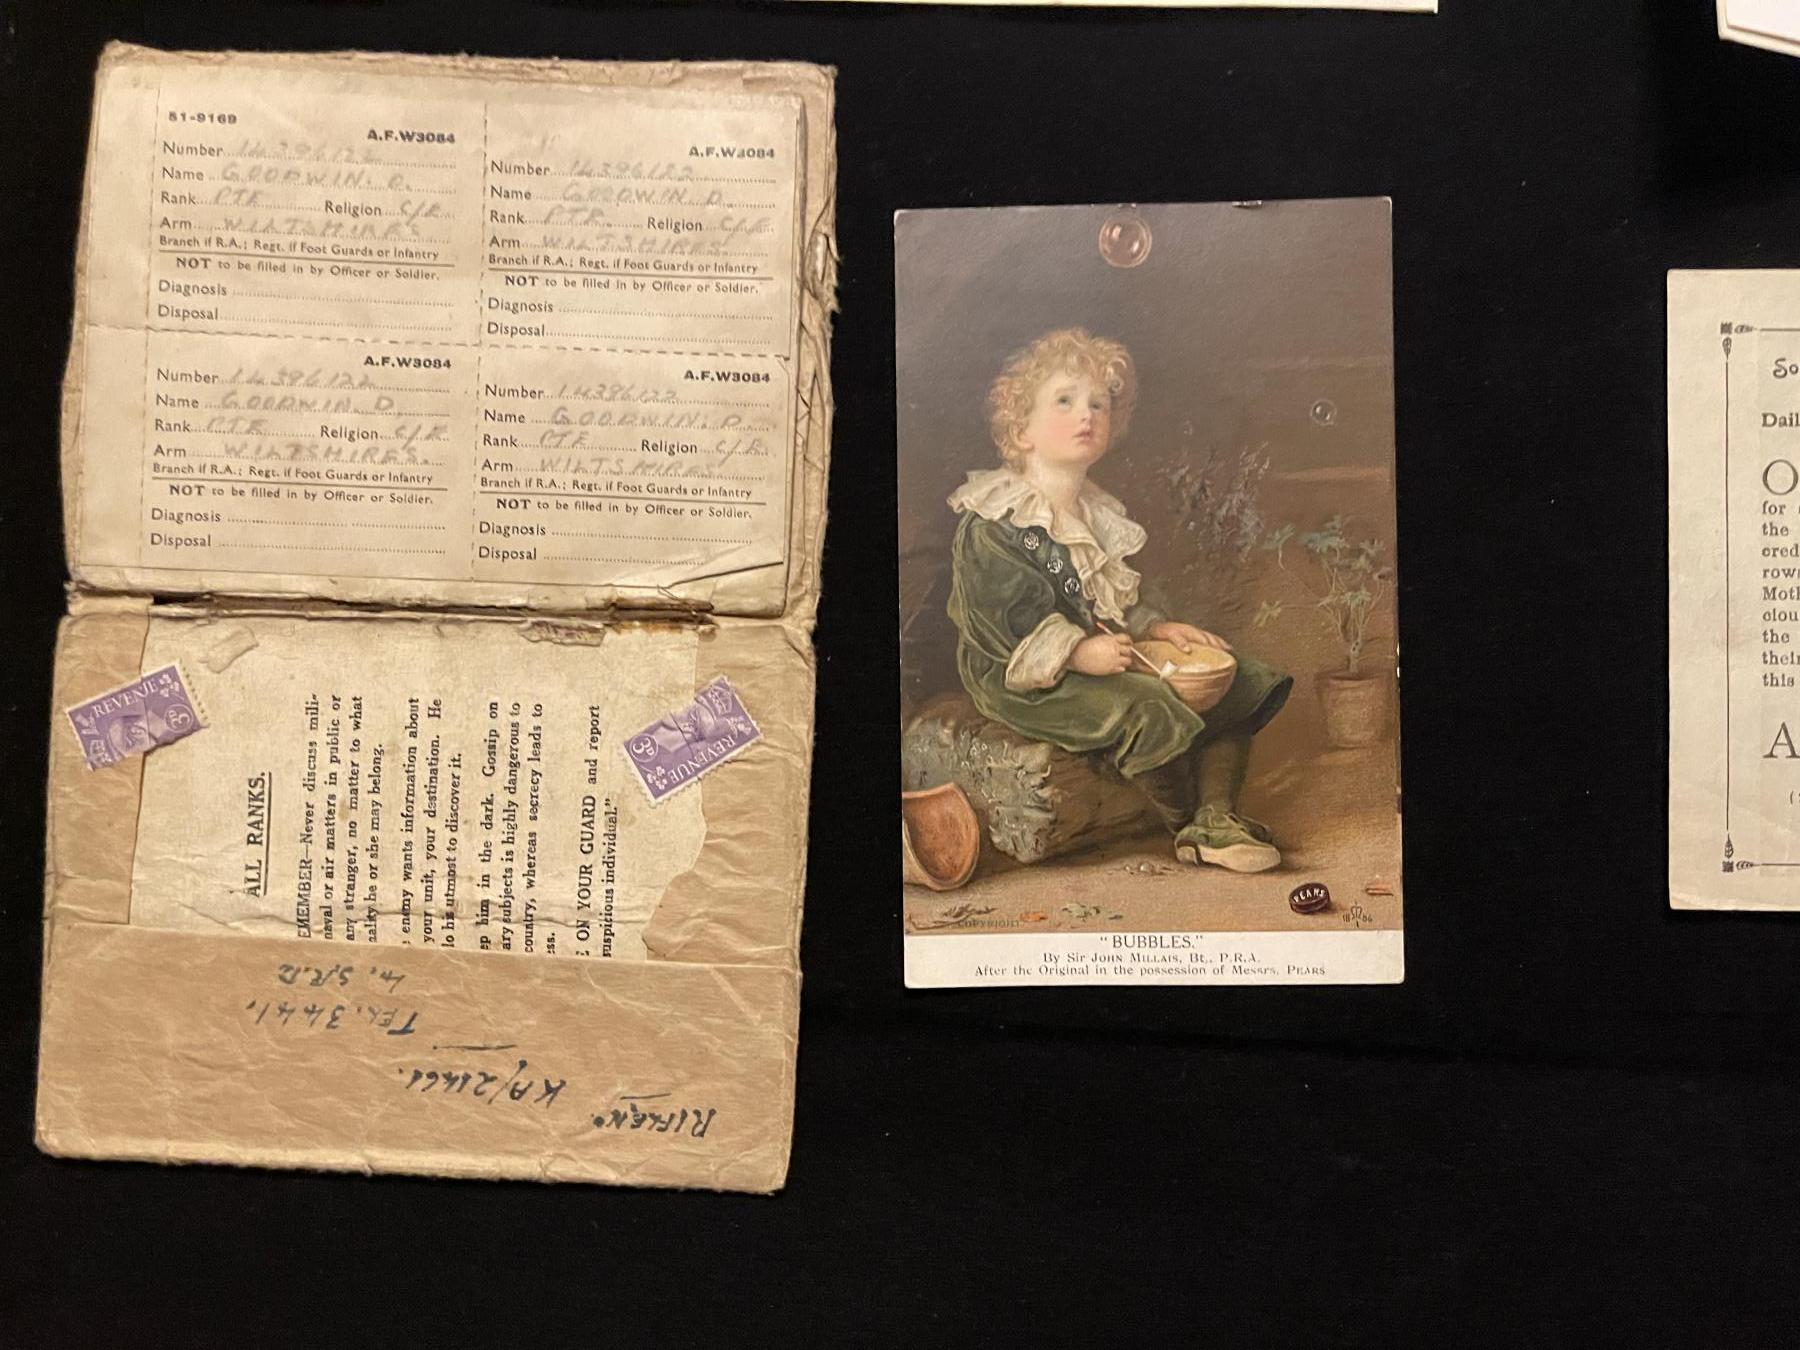 51-9169
A.F.W3084
Number 14396122
Name GOODWIN. D.
Rank PTE Religion C/E
Arm WILTSHIRES
Branch if R.A.; Regt. if Foot Guards or Infantry
NOT to be filled in by Officer or Soldier.
Diagnosis
Disposal
A.F.W3084
Number 14396122
Name GOODWIN D.
Rank PTE. Religion C/E
Arm WILTSHIRES
Branch if R.A.; Regt. if Foot Guards or Infantry
NOT to be filled in by Officer or Soldier.
Diagnosis
Disposal
A.F.W3084
Number 14396122
Name GOODWIN. D
Rank PTE Religion C/E
Arm WILTSHIRES.
Branch if R.A.; Regt. if Foot Guards or Infantry
NOT to be filled in by Officer or Soldier.
Diagnosis
Disposal
A.F.W3084
Number 14396122
Name GOODWIN. D.
Rank PTE Religion C/E.
Arm WILTSHIRES
Branch if R.A.; Regt. if Foot Guards or Infantry
NOT to be filled in by Officer or Soldier.
Diagnosis
Disposal
REVENUE
3D
REVENUE
3D
ALL RANKS.
EMEMBER—Never discuss mili-
naval or air matters in public or
any stranger, no matter to what
nality he or she may belong.
enemy wants information about
your unit, your destination. He
lo his utmost to discover it.
ep him in the dark. Gossip on
ary subjects is highly dangerous to
country, whereas secrecy leads to
ess.
E ON YOUR GUARD and report
suspicious individual."
RIFLE No.
KA/21461.
TEL. 3441.
PEARS
1886
COPYRIGHT
"BUBBLES."
By Sir JOHN MILLAIS, Bt., P.R.A.
After the Original in the possession of Messrs. PEARS
So
Dail
O
for
the
cred
rows
Moth
clou
the
their
this
A